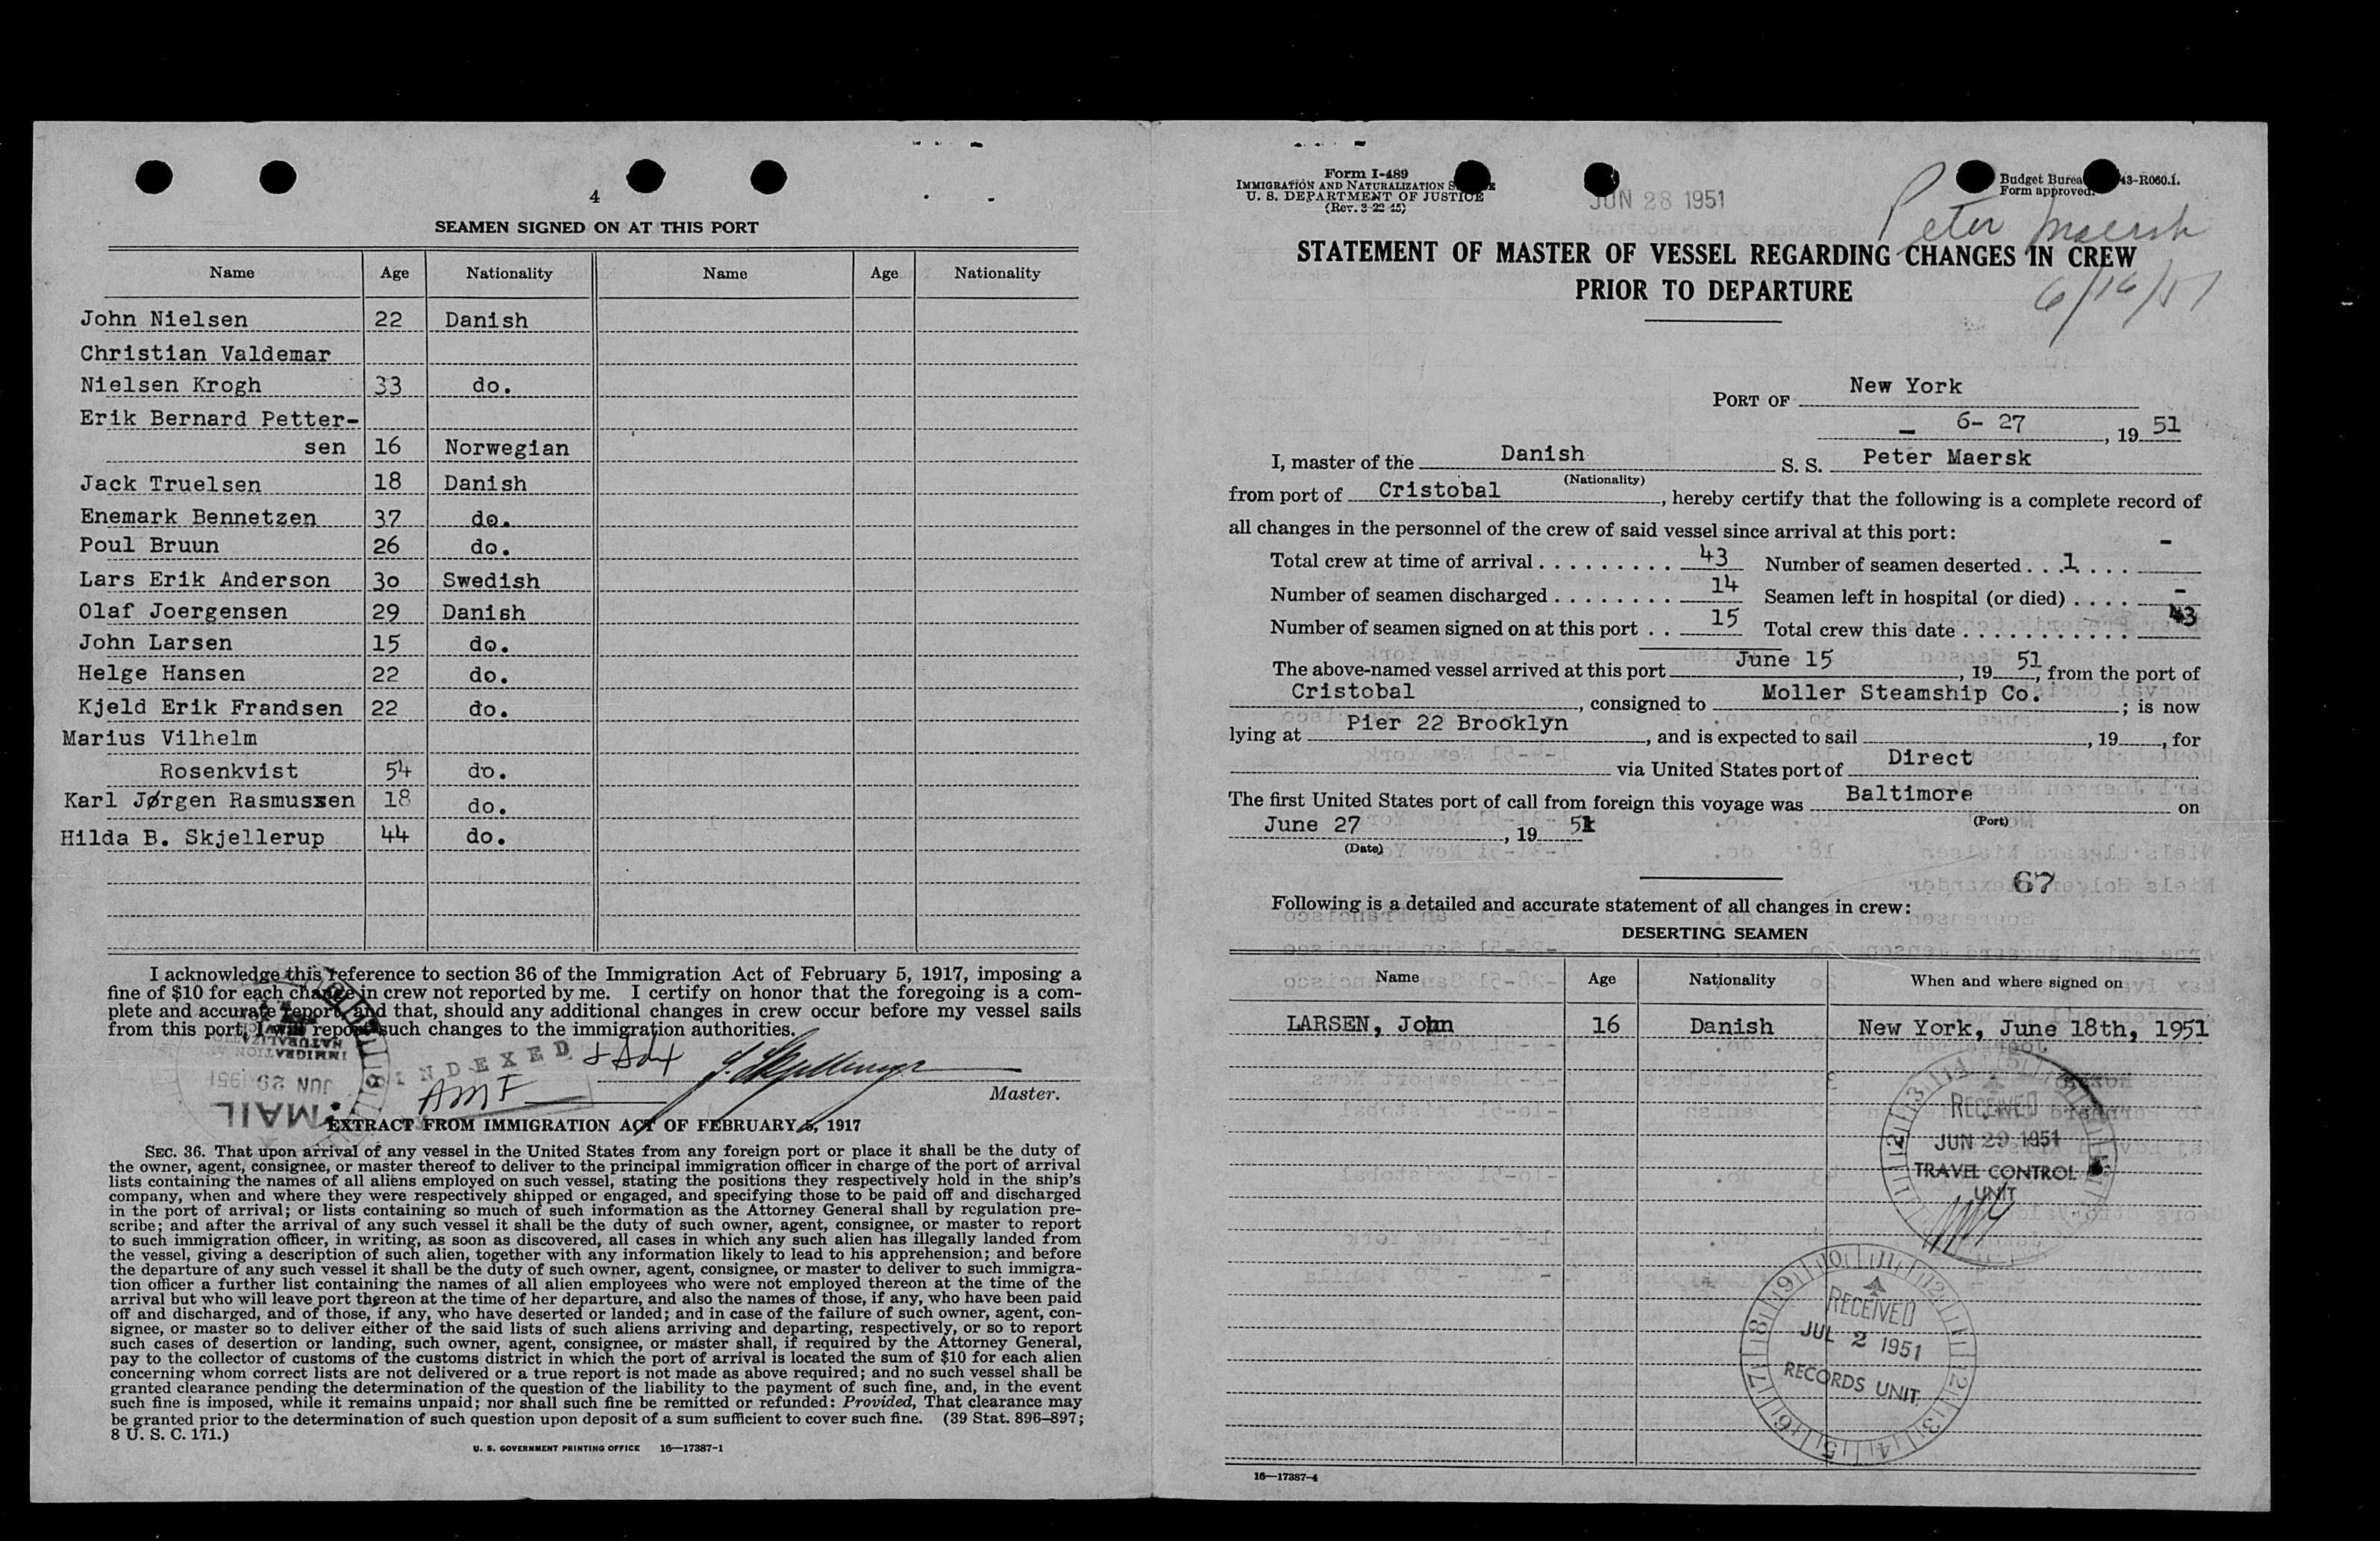 4
SEAMEN SIGNED ON AT THIS PORT
Name Age Nationality Name Age Nationality
John Nielsen 22 Danish
Christian Valdemar
Nielsen Krogh 33 do.
Erik Bernard Petter-
sen 16 Norwegian
Jack Truelsen 18 Danish
Enemark Bennetzen 37 do.
Poul Bruun 26 do.
Lars Erik Anderson 30 Swedish
Olaf Joergensen 29 Danish
John Larsen 15 do.
Helge Hansen 22 do.
Kjeld Erik Frandsen 22 do.
Marius Vilhelm
Rosenkvist 54 do.
Karl Jørgen Rasmussen 18 do.
Hilda B. Skjellerup 44 do.
I acknowledge this reference to section 36 of the Immigration Act of February 5, 1917, imposing a
fine of $10 for each change in crew not reported by me. I certify on honor that the foregoing is a com-
plete and accurate report, and that, should any additional changes in crew occur before my vessel sails
from this port, I will report such changes to the immigration authorities.
IMMIGRATION
JUN 29 1951
MAIL
INDEXED
AMF
Master.
EXTRACT FROM IMMIGRATION ACT OF FEBRUARY 5, 1917
SEC. 36. That upon arrival of any vessel in the United States from any foreign port or place it shall be the duty of
the owner, agent, consignee, or master thereof to deliver to the principal immigration officer in charge of the port of arrival
lists containing the names of all aliens employed on such vessel, stating the positions they respectively hold in the ship's
company, when and where they were respectively shipped or engaged, and specifying those to be paid off and discharged
in the port of arrival; or lists containing so much of such information as the Attorney General shall by regulation pre-
scribe; and after the arrival of any such vessel it shall be the duty of such owner, agent, consignee, or master to report
to such immigration officer, in writing, as soon as discovered, all cases in which any such alien has illegally landed from
the vessel, giving a description of such alien, together with any information likely to lead to his apprehension; and before
the departure of any such vessel it shall be the duty of such owner, agent, consignee, or master to deliver to such immigra-
tion officer a further list containing the names of all alien employees who were not employed thereon at the time of the
arrival but who will leave port thereon at the time of her departure, and also the names of those, if any, who have been paid
off and discharged, and of those, if any, who have deserted or landed; and in case of the failure of such owner, agent, con-
signee, or master so to deliver either of the said lists of such aliens arriving and departing, respectively, or so to report
such cases of desertion or landing, such owner, agent, consignee, or master shall, if required by the Attorney General,
pay to the collector of customs of the customs district in which the port of arrival is located the sum of $10 for each alien
concerning whom correct lists are not delivered or a true report is not made as above required; and no such vessel shall be
granted clearance pending the determination of the question of the liability to the payment of such fine, and, in the event
such fine is imposed, while it remains unpaid; nor shall such fine be remitted or refunded: Provided, That clearance may
be granted prior to the determination of such question upon deposit of a sum sufficient to cover such fine. (39 Stat. 896-897;
8 U. S. C. 171.)
U. S. GOVERNMENT PRINTING OFFICE 16—17387-1
Form I-489
IMMIGRATION AND NATURALIZATION
U. S. DEPARTMENT OF JUSTICE
(Rev. 3-22-45)
JUN 28 1951
Budget Bureau 43-R060.1.
Form approved.
Peter Maersk
6/16/51
STATEMENT OF MASTER OF VESSEL REGARDING CHANGES IN CREW
PRIOR TO DEPARTURE
PORT OF New York
6- 27, 19 51
I, master of the Danish S. S. Peter Maersk
(Nationality)
from port of Cristobal, hereby certify that the following is a complete record of
all changes in the personnel of the crew of said vessel since arrival at this port:
Total crew at time of arrival 43 Number of seamen deserted 1 -
Number of seamen discharged 14 Seamen left in hospital (or died) -
Number of seamen signed on at this port 15 Total crew this date 43
The above-named vessel arrived at this port June 15, 19 51, from the port of
Cristobal, consigned to Moller Steamship Co.; is now
lying at Pier 22 Brooklyn, and is expected to sail, 19, for
via United States port of Direct
The first United States port of call from foreign this voyage was Baltimore on
(Port)
June 27, 19 51
(Date)
67
Following is a detailed and accurate statement of all changes in crew:
DESERTING SEAMEN
Name Age Nationality When and where signed on
LARSEN, John 16 Danish New York, June 18th, 1951
RECEIVED
JUN 29 1951
TRAVEL CONTROL
UNIT
RECEIVED
JUL 2 1951
RECORDS UNIT
16—17387-4